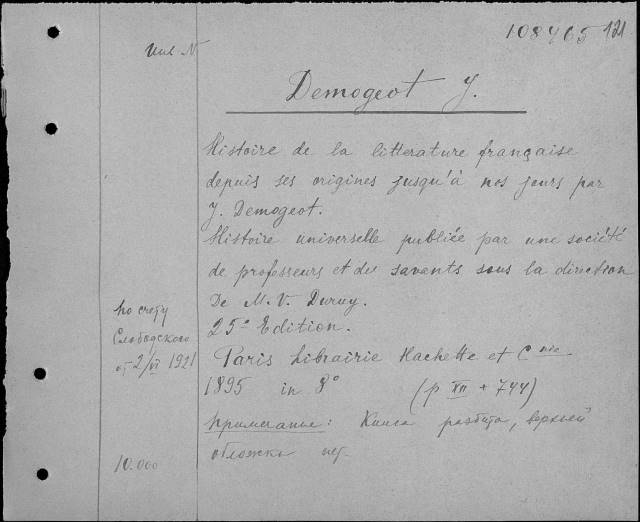 108405 121
Инв N
Demogeot J.
Histoire de la litterature française
depuis ses origines jusqu'à nos jours par
J. Demogeot.
Histoire universelle publiée par une société
de professeurs et des savents sous la direction
De M. V. Duruy.
25e Edition.
Paris Librairie Hachette et Cnie
1895 in 8° (p XII + 744)
Примечанье: Книга разбита, верхней
обложки нет.
по счету
Слободского
от 2/VI 1921
10.000